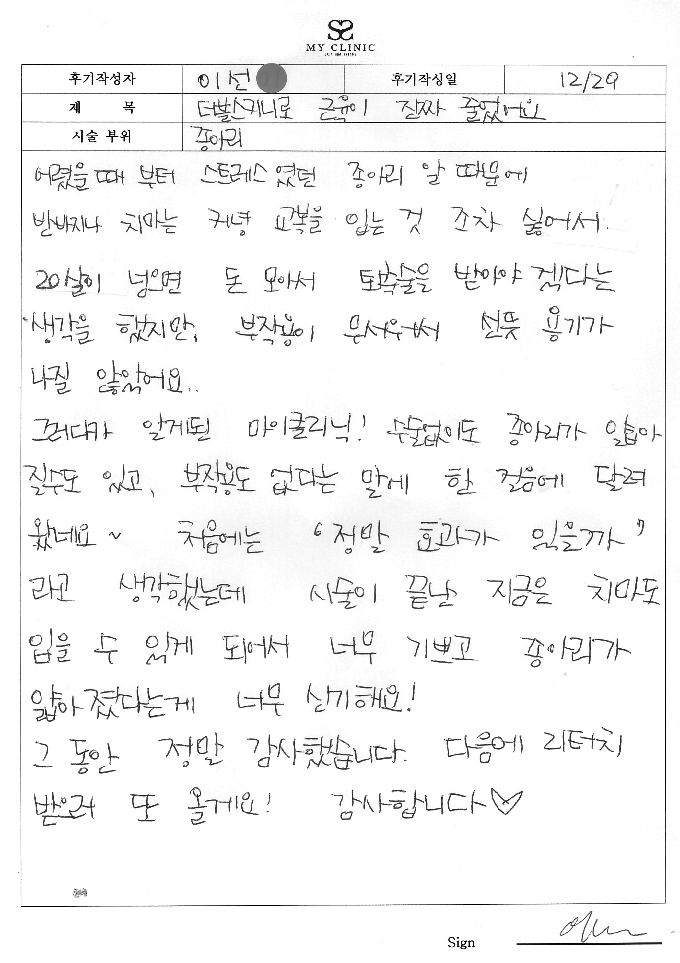 MY CLINIC
후기작성자 이선 후기작성일 12/29
제 목 더블스키니로 근육이 진짜 줄었어요
시술 부위 종아리
어렸을때 부터 스트레스였던 종아리 알 때문에
반바지나 치마는 커녕 교복을 입는 것 조차 싫어서.
20살이 넘으면 돈 모아서 퇴축술을 받아야 겠다는
생각을 했지만, 부작용이 무서워서 선뜻 용기가
나질 않았어요..
그러다가 알게된 마이클리닉! 수술없이도 종아리가 얇아
질수도 있고, 부작용도 없다는 말에 한 걸음에 달려
왔네요~ 처음에는 "정말 효과가 있을까"
라고 생각했는데 시술이 끝난 지금은 치마도
입을 수 있게 되어서 너무 기쁘고 종아리가
얇아졌다는게 너무 신기해요!
그 동안 정말 감사했습니다. 다음에 리터치
받으러 또 올게요! 감사합니다♡
Sign